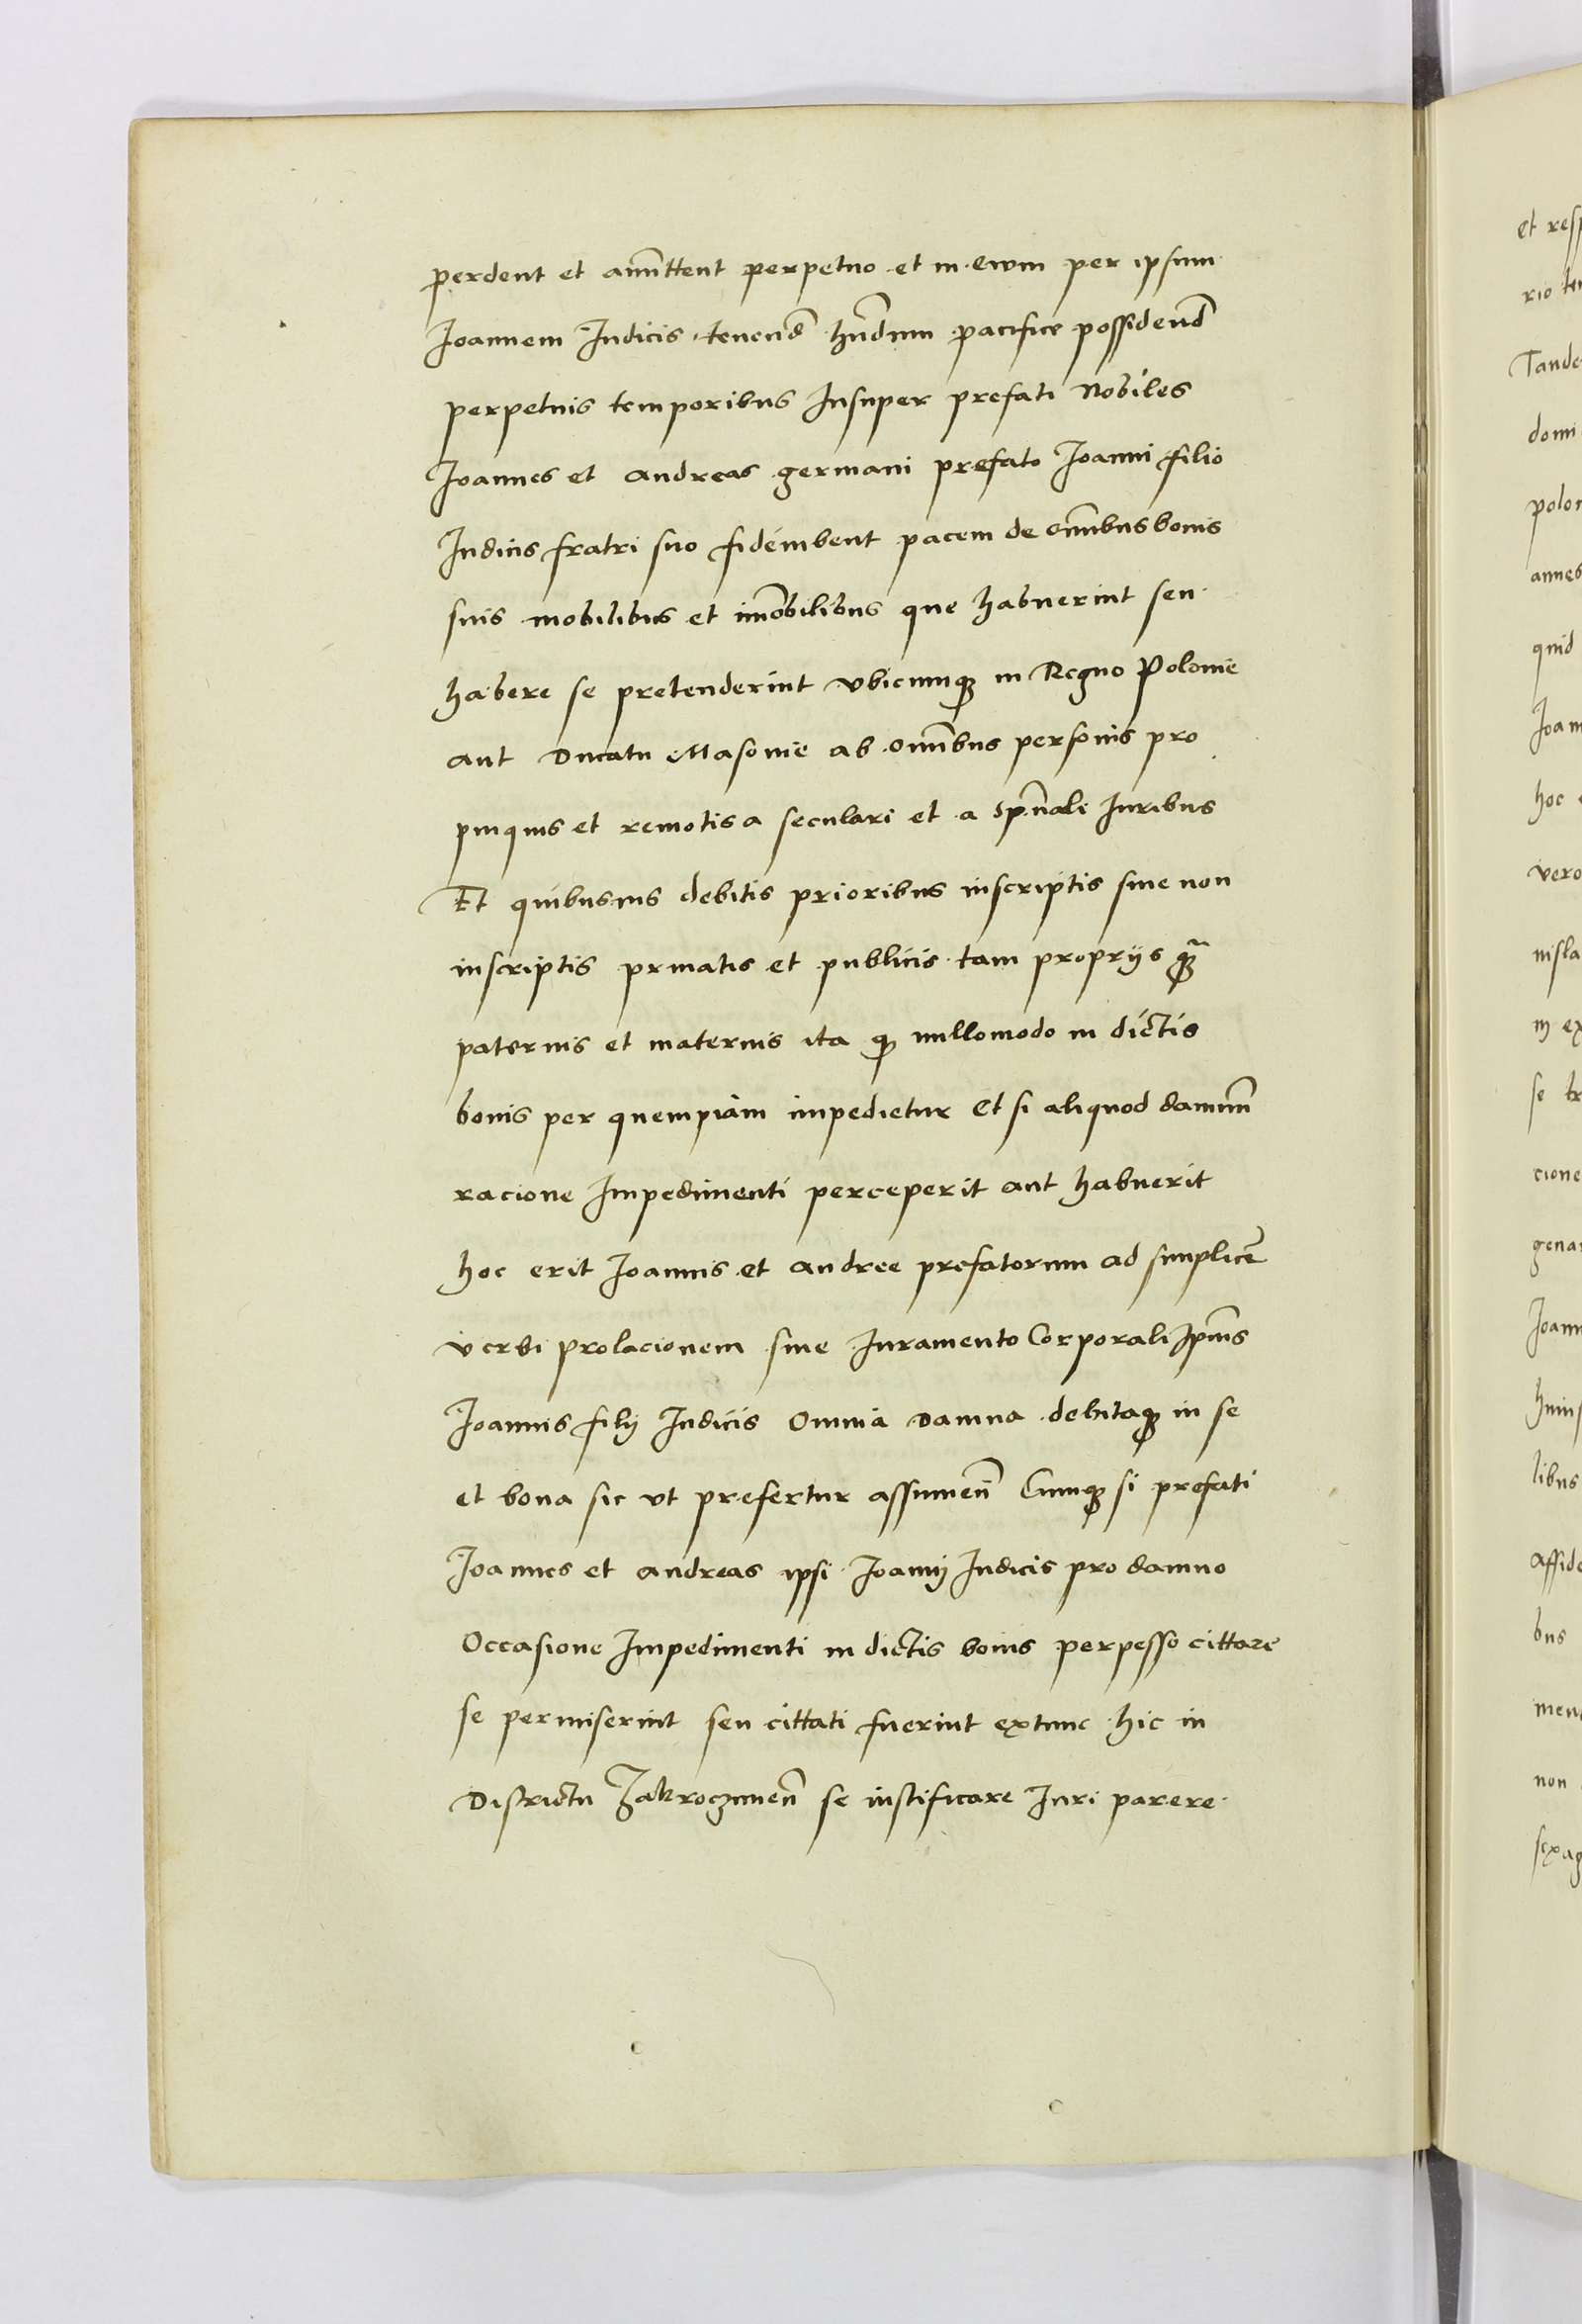 perdent et amittent perpetuo et in ewm per ipsum
Ioannem Iudicis tenend hñdum pacifice possidend
perpetuis temporibus Insuper prefati Nobiles
Ioannes et andreas germani prefato Ioanni filio
Iudicis fratri suo fideiubent pacem de omībus bonis
suis mobilibus et imōbilibus que habuerint seu
habere se pretenderint vbicumqꝫ in Regno Polonie
aut Ducatu Masouie ab omībus personis pro
pinquis et remotis a seculari et a spūali Iuribus
Et quibusuis debitis prioribus inscriptis siue non
inscriptis priuatis et publicis tam proprijs qꝫ̃
paternis et maternis ita qꝫ nullomodo in dictis
bonis per quempiam impedietur Et si aliquod damnū
racione Impedimenti perceperit aut habuerit
hoc erit Ioannis et andree prefatorum ad simplicē
verbi prolacionem siue Iuramento Corporali Ipīus
Ioannis filij Iudicis Omnia Damna debitaqꝫ in se
et bona sic vt prefertur assumeñ Cumqꝫ si prefati
Ioannes et andreas ipsi Ioanni Iudicis pro damno
Occasione Impedimenti in dictis bonis perpesso cittare
se permiserint seu cittati fuerint extunc hic in
Districtu Zakroczimeñ se iustificare Iuri parere
et resp
rio te
Tande
domi
polon
annes
quid
Ioan
hoc
vero
nisla
in ex
se tr
cione
gena
Ioann
huius
libus
affide
bus
men
non
sexag